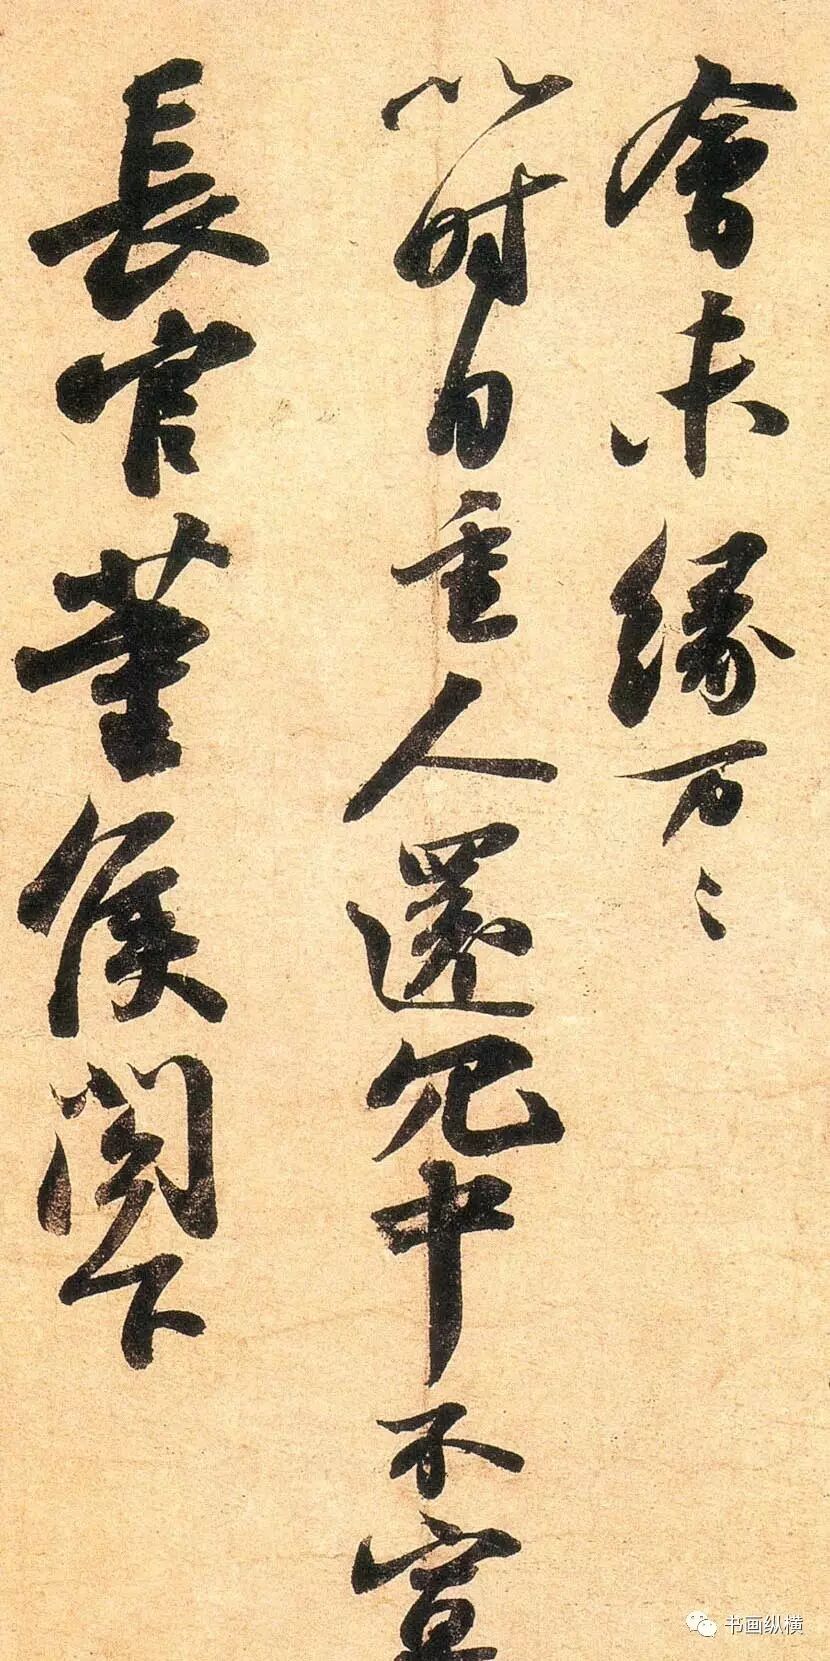 會未緣万々
以时自重人還冗中不宣
長官董侯閣下
书画纵横